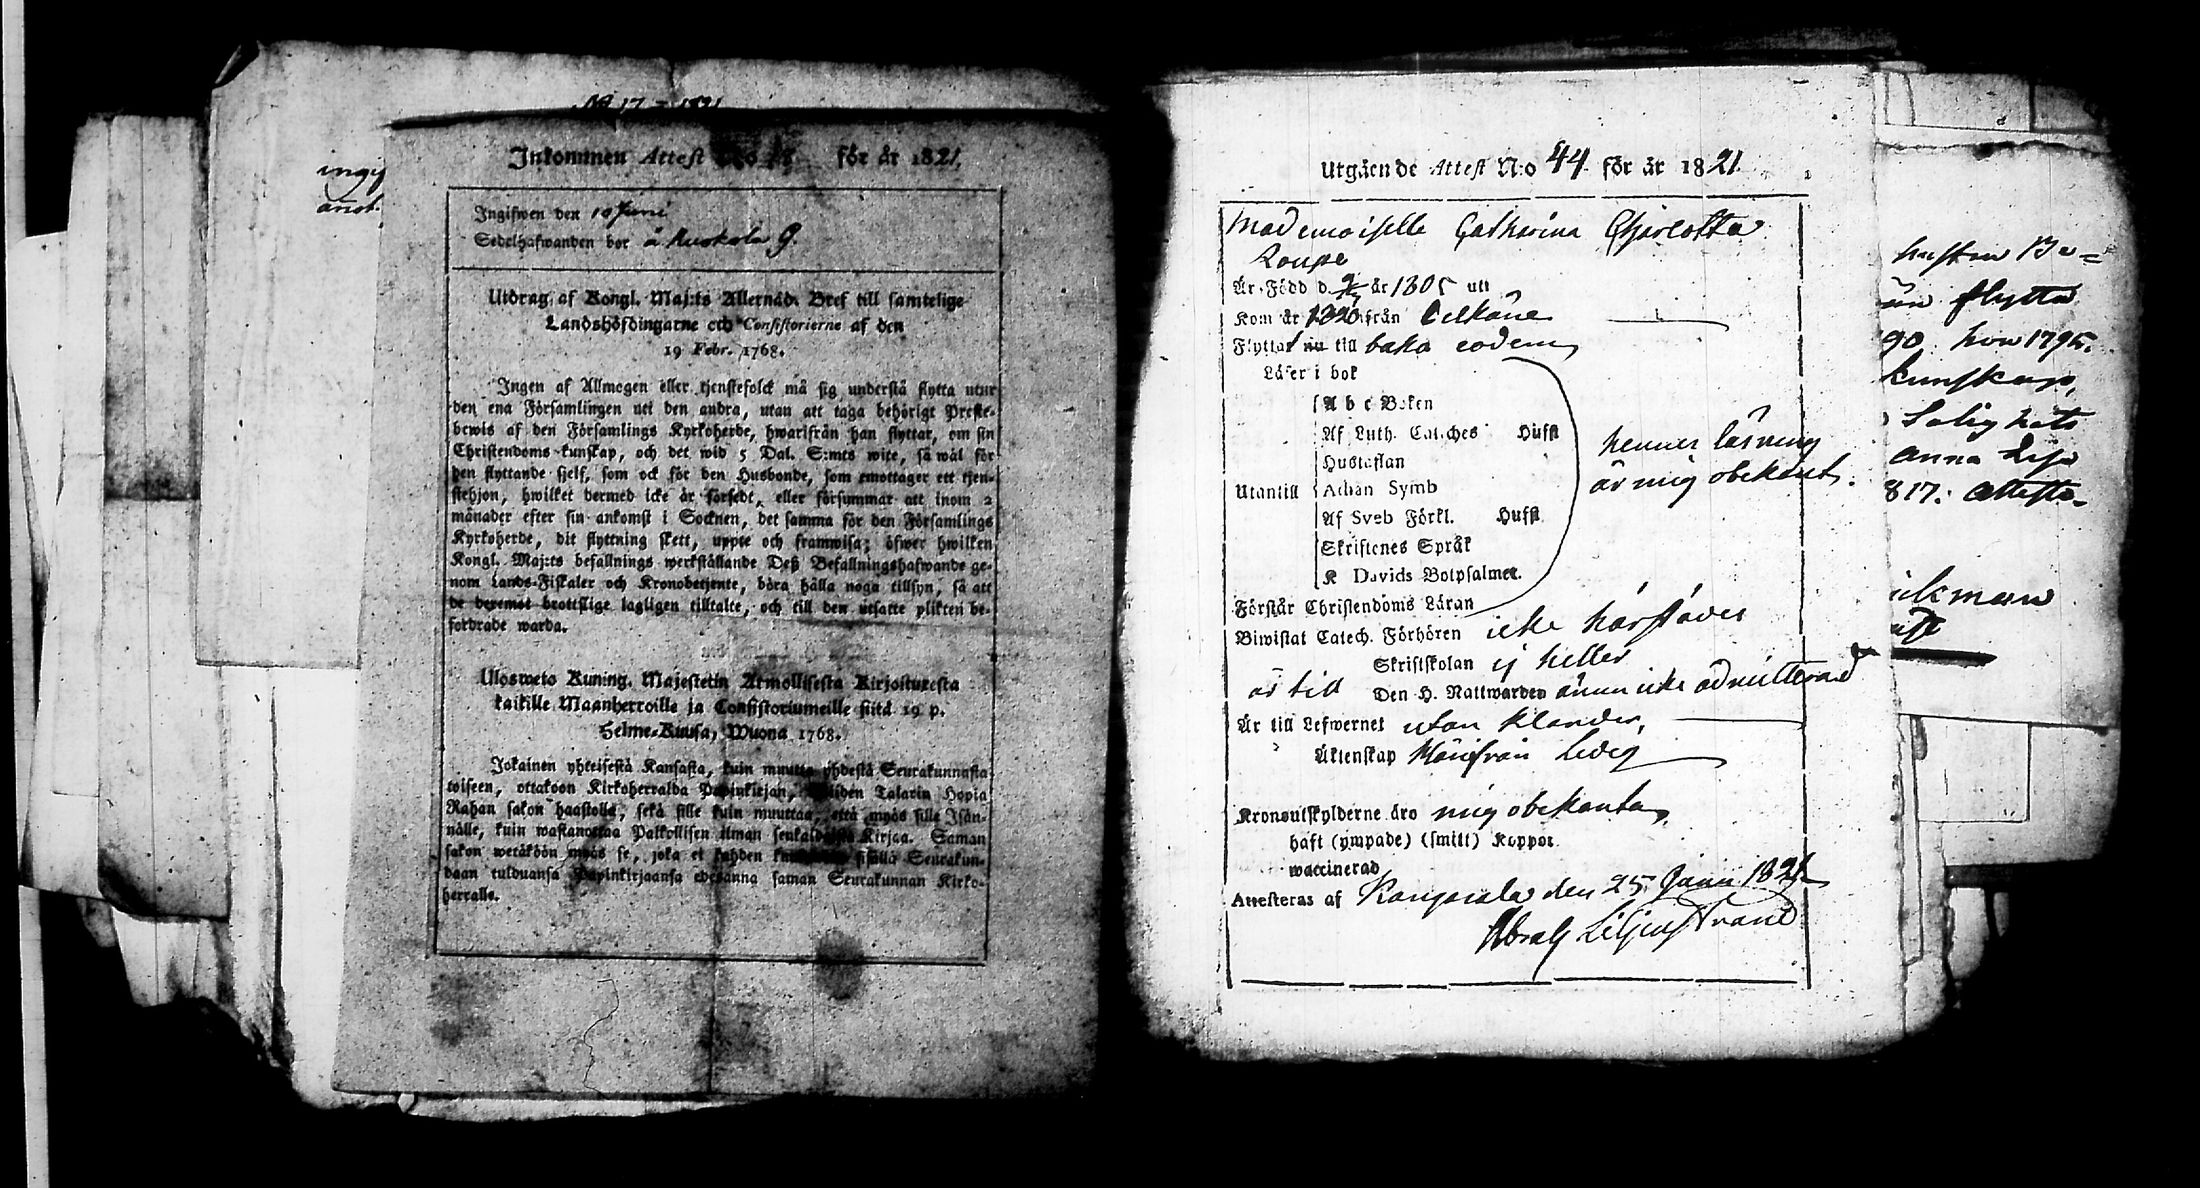 No 17 = 1821
ingif
anst.
Inkommen Attest N:o för år 1821.
Ingifwen den 10 Juni
Sedelhafwanden bor å Huskola G.
Utdrag af Kongl. Maj:ts Allernåd. Bref till samtelige
Landshöfdingarne och Consistorierne af den
19 Febr. 1768.
Ingen af Allmogen eller tjenstefolck må sig understå flytta utur
den ena Församlingen uti den andra, utan att taga behörigt Preste-
bewis af den Församlings Kyrkoherde, hwarifrån han flyttar, om sin
Christendoms kunskap, och det wid 5 Dal. S:mts wite, så wäl för
den flyttande sjelf, som ock för den Husbonde, som emottager ett tjen-
stehjon, hwilket dermed icke är försedt, eller försummar att inom 2
månader efter sin ankomst i Socknen, det samma för den Församlings
Kyrkoherde, dit flyttning skett, uppte och framwisa; öfwer hwilken
Kongl. Maj:ts befallnings werkställande Deß Befallningshafwande ge-
nom Lands-Fiskaler och Kronobetjente, böra hålla noga tillsyn, så att
de deremot brottslige lagligen tilltalte, och till den utsatte plikten be-
fordrade warda.
Ulosweto Kuning. Majestetin Armollisesta Kirjoituxesta
kaikille Maanherroille ja Consistoriumeille siitä 19 p.
Helme-Kuusa, Wuona 1768.
Jokainen yhteisestä Kansasta, kuin muutta yhdestä Seurakunnasta
toiseen, ottakoon Kirkoherralda Papinkirjan, wiiden Talarin Hopia
Rahan sakon haastolla, sekä sille kuin muuttaa, että myös sille Isän-
nälle, kuin wastanottaa Palkollisen ilman senkaldaista Kirjaa. Saman
sakon wetäköön myös se, joka ei kahden sisällä Seurakun-
daan tulduansa Papinkirjaansa edesanna saman Seurakunnan Kirko-
herralle.
Utgående Attest N:o 44 för år 1821.
Mademoiselle Catharina Charlotta
Loupe
Är Född d. år 1805 utt
Kom år 1820 ifrån Celkäne
Flyttar nu till baka eodem
Läser i bok
A b c Boken
Af Luth. Catéches Hufst
Hustaflan
Utantill Athan Symb
Af Sveb Förkl. Hufst
Skriftenes Språk
K Davids Botpsalmer.
hennes läsning
är mig obekant.
Förstår Christendoms Läran
Biwistat Catech. Förhören icke härstädes
Skriftskolan ej heller
är till Den H. Nattwarden ännu icke admitterad
Är till Lefwernet utan klander,
Äktenskap härifrån Ledig
Kronoutskylderne äro mig obekanta,
haft (ympade) (smitt) Koppor
waccinerad
Attesteras af Kangasala den 25 Junii 1821
Abrah Liljenstrand
hustru
flytta
90 hon 1795.
kunskap,
Salighets
Anna Lisa
817. Atteste-